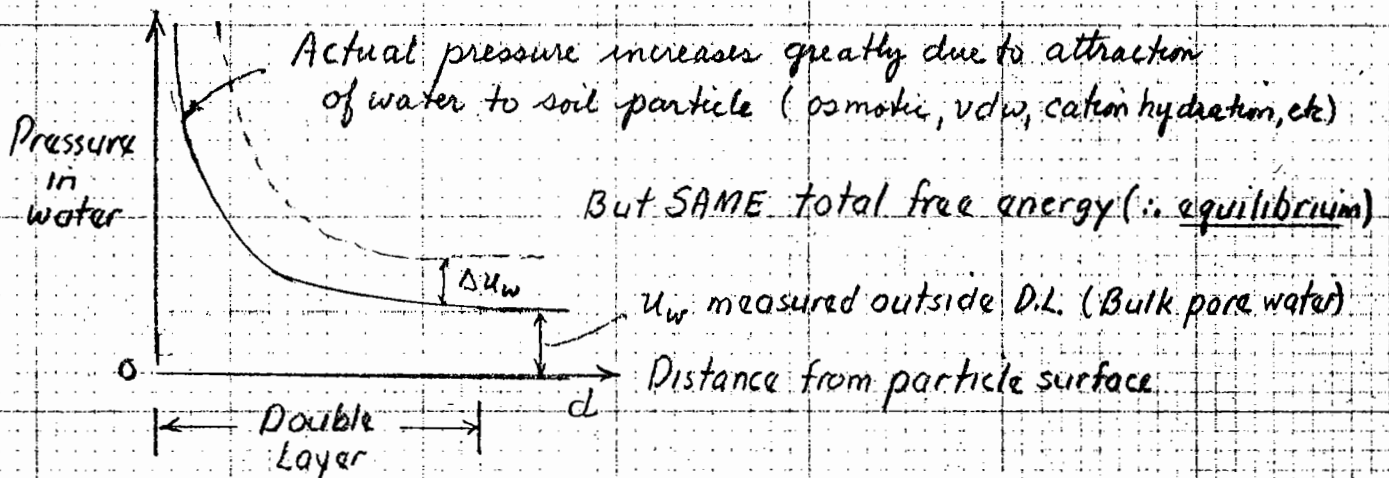 Actual pressure increases greatly due to attraction
of water to soil particle (osmotic, vdw, cation hydration, etc)
Pressure
in
water
But SAME total free energy (∴ equilibrium)
Δu_w
u_w measured outside D.L. (Bulk pore water)
0
Distance from particle surface
d
Double
Layer